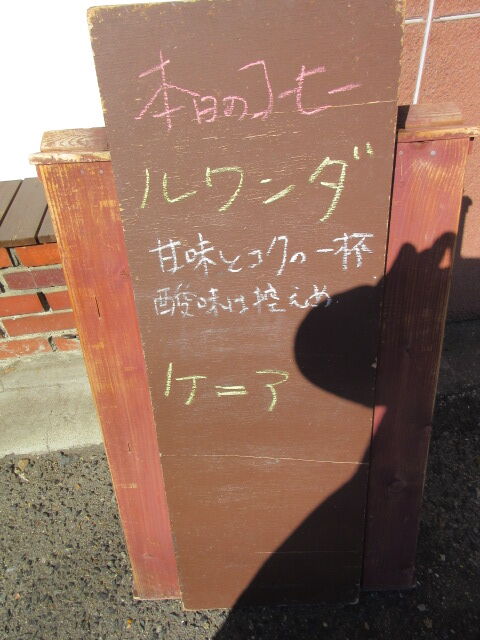 本日のコーヒー
ルワンダ
甘味とコクの一杯
酸味は控えめ
ケニア